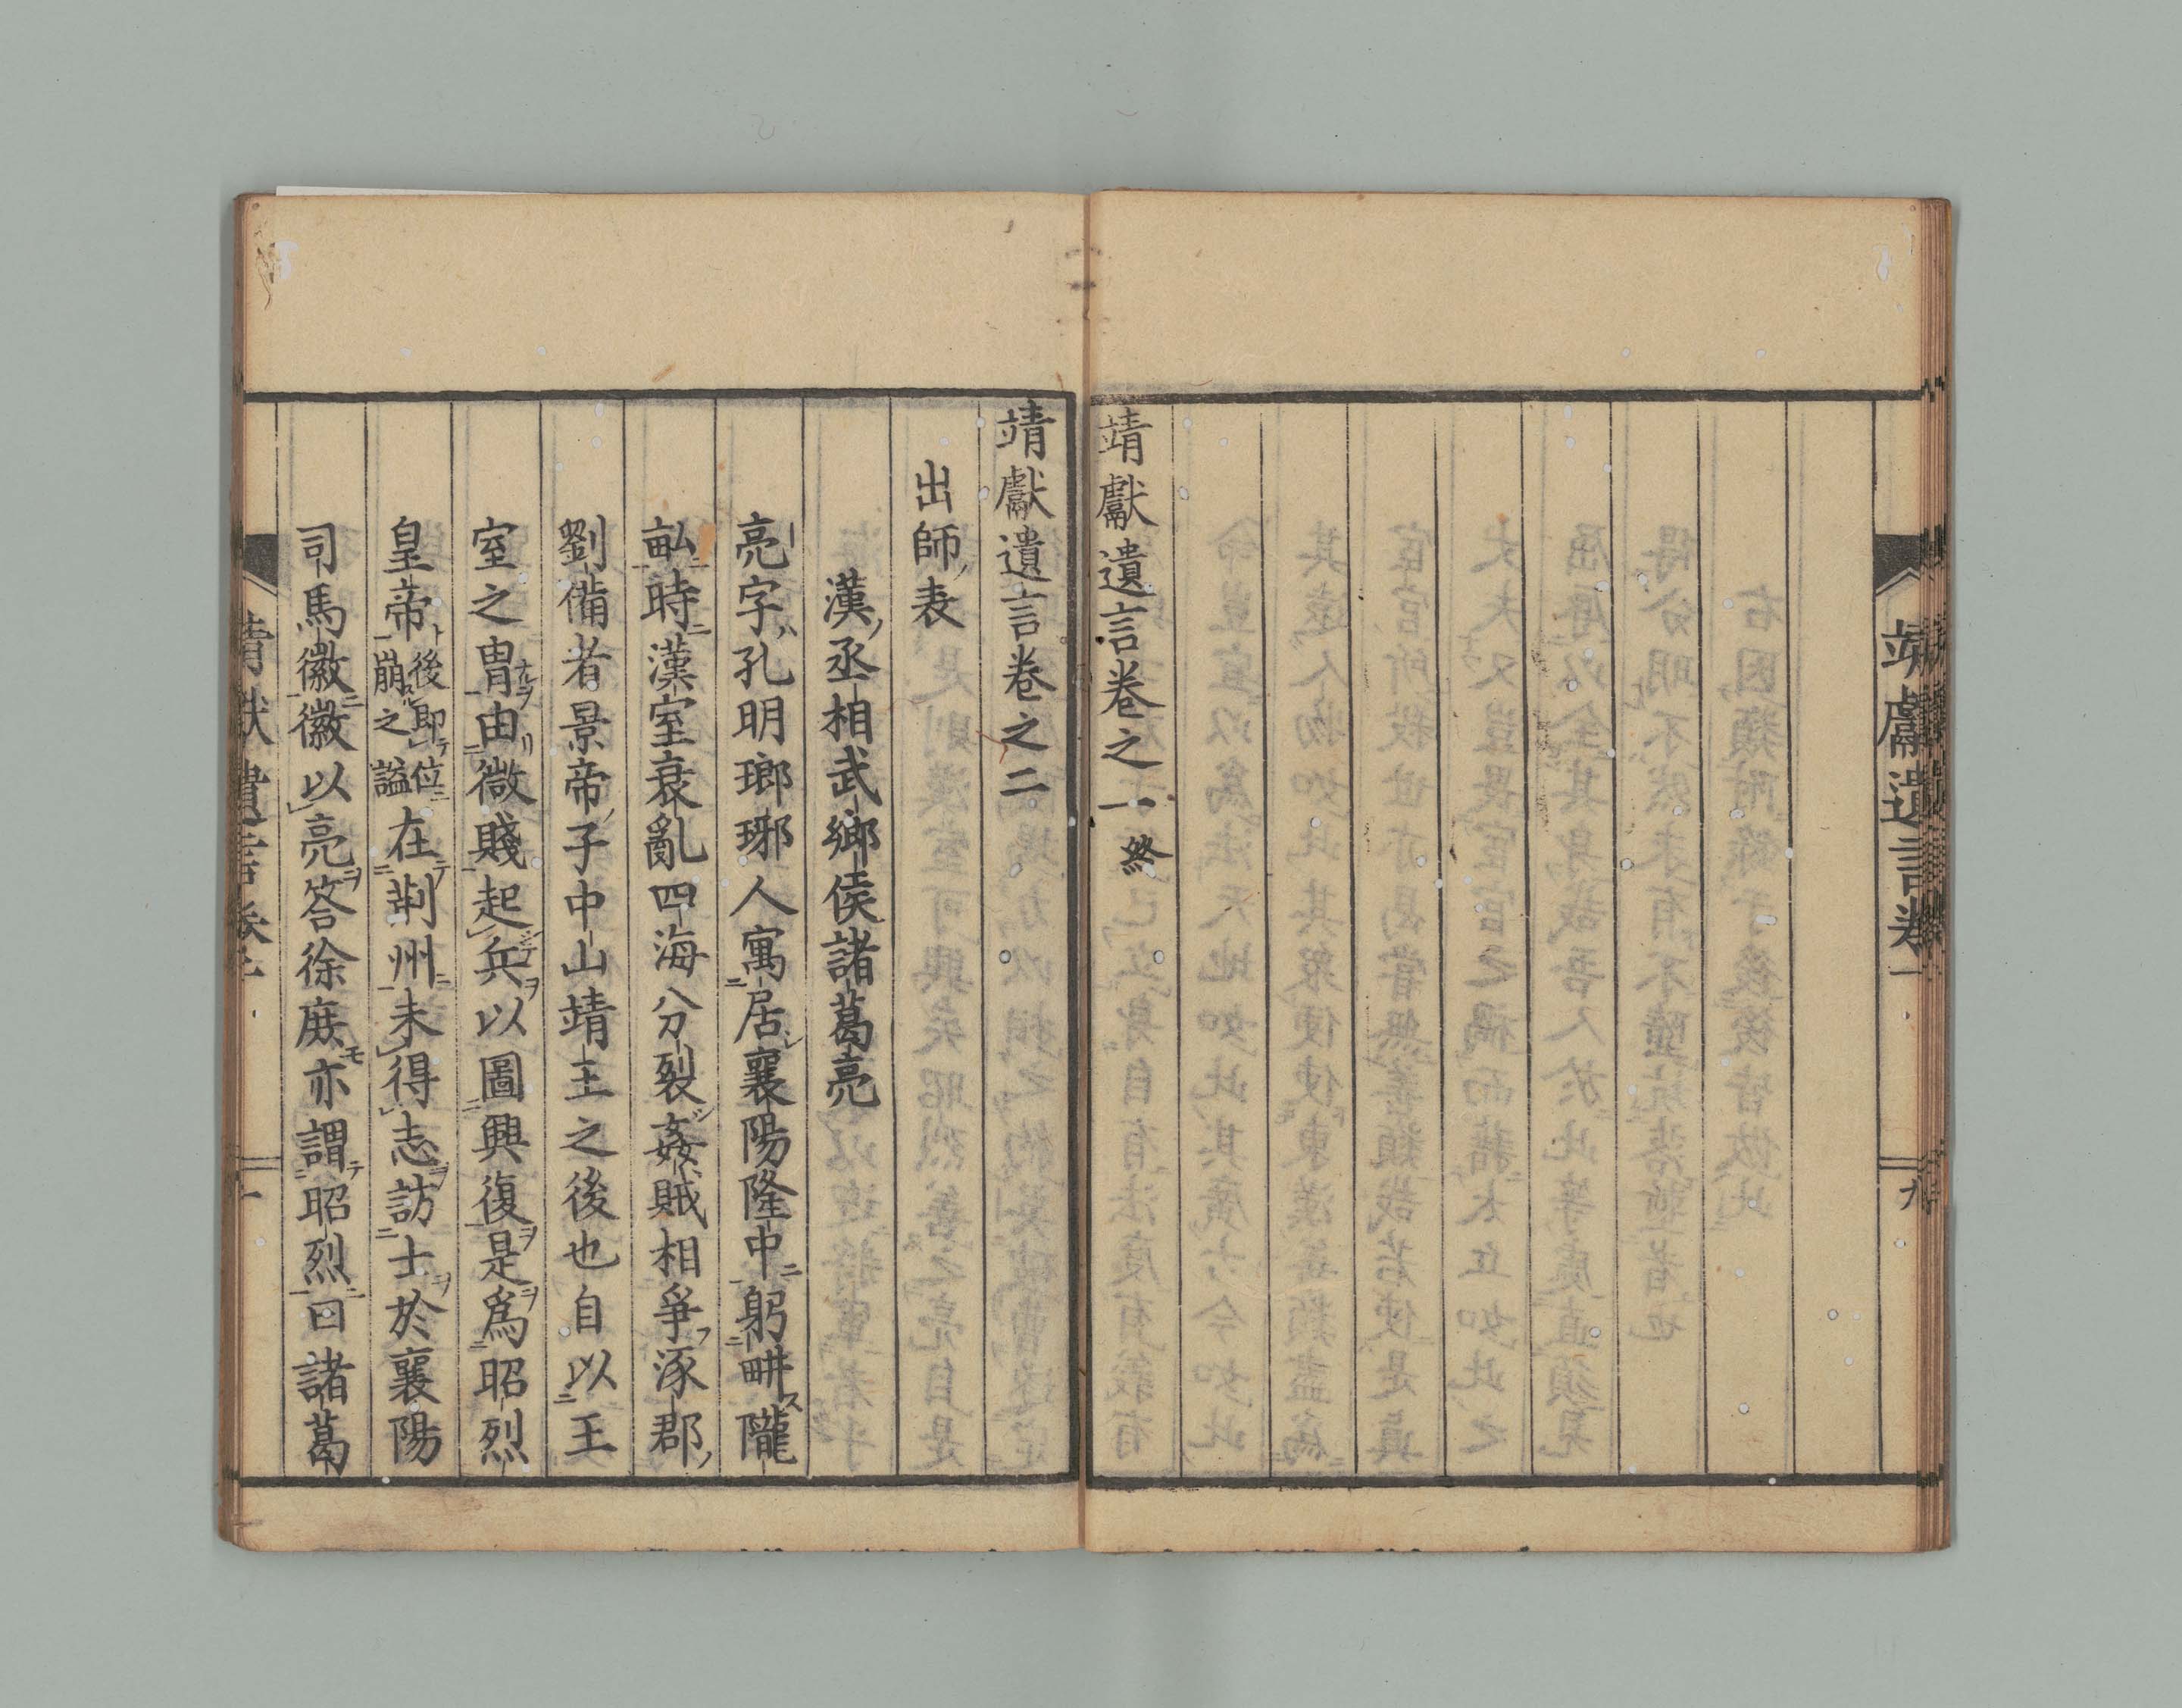 靖獻遺言卷一
九
靖獻遺言卷之一終
靖獻遺言卷之二
出師表
漢丞相武鄉侯諸葛亮
亮字孔明瑯琊人寓居襄陽隆中躬畊隴
畝時漢室衰亂四海分裂姦賊相爭涿郡
劉備者景帝子中山靖王之後也自以王
室之冑由微賤起兵以圖興復是爲昭烈
皇帝後即位崩之謚在荆州未得志訪士於襄陽
司馬徽徽以亮答徐庶亦謂昭烈曰諸葛